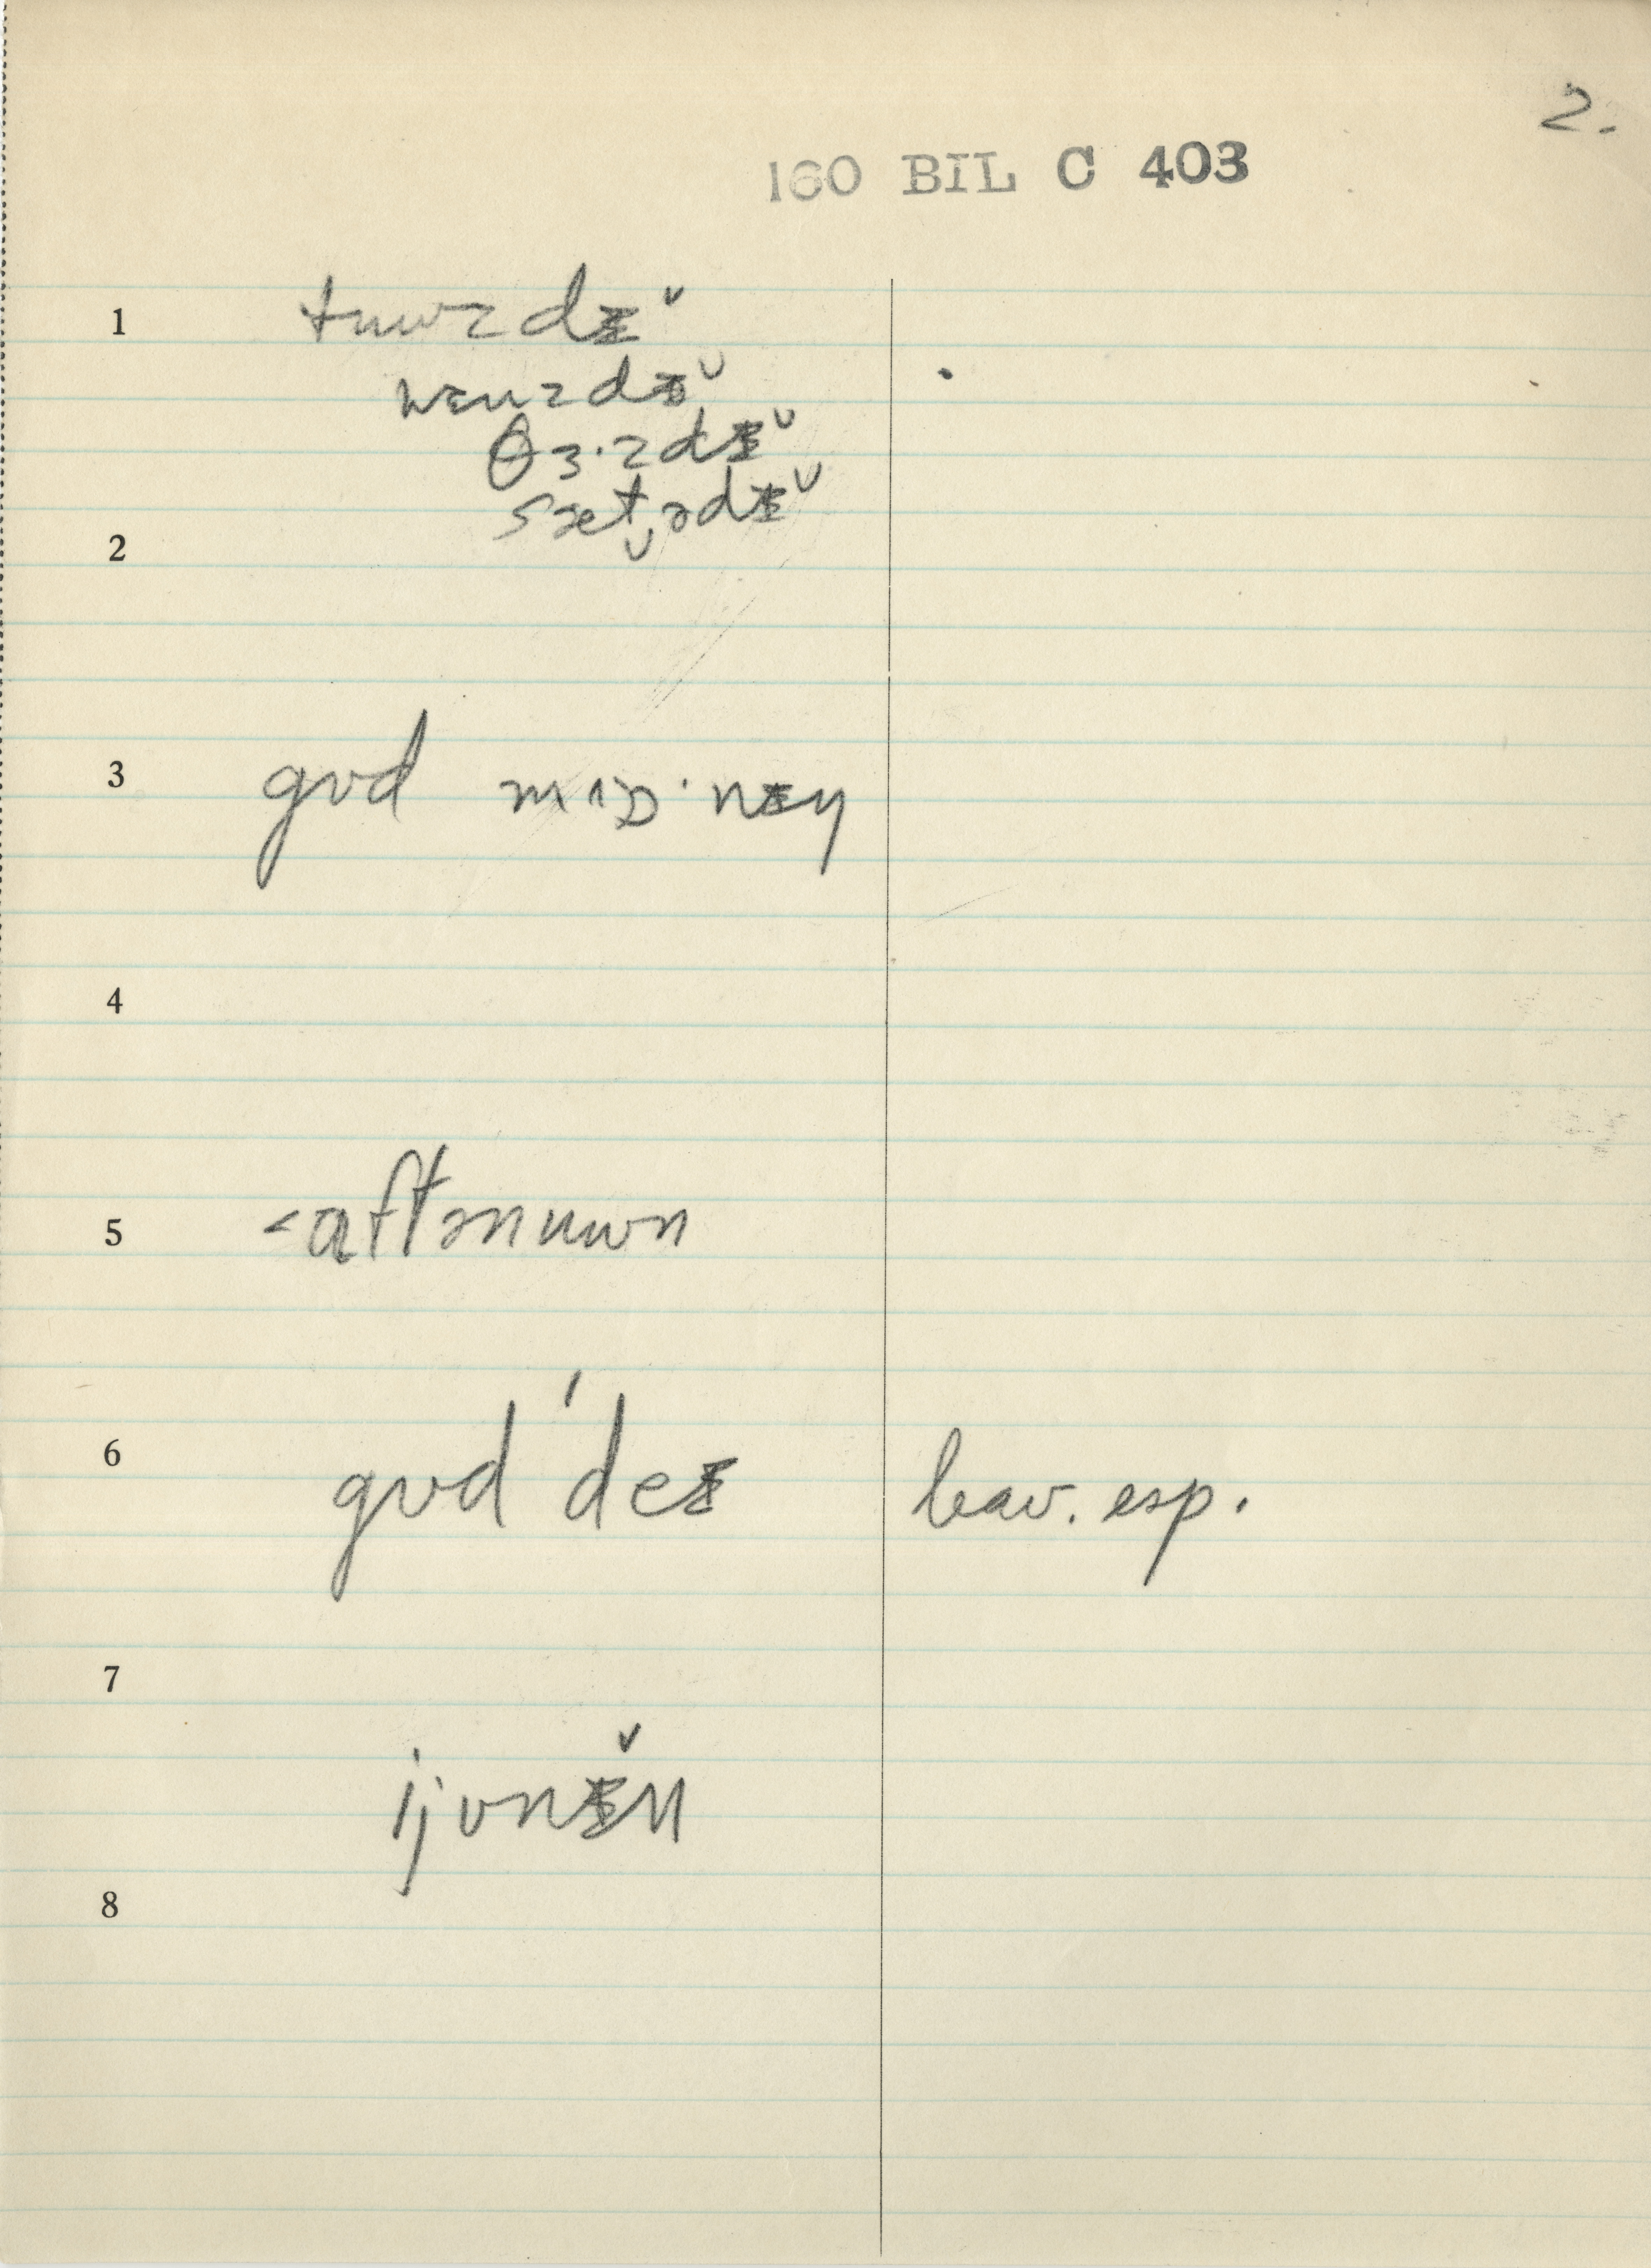 2.
160 BIL C 403
1 tuwzdɪ̌
wɛnzdɪ̌
θɜ·zdɪ̌
sæt̬ədɪ̌
2
3 gʊd mɒ·nɪŋ
4
5 <aftənuwn
6 gʊd 'deɪ leav. esp.
7
ijvnɪ̌n
8